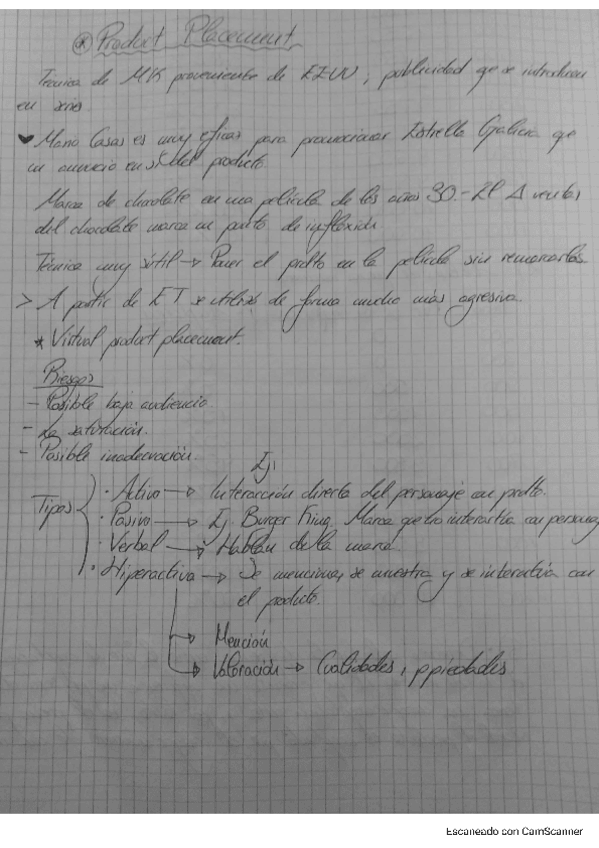 Product Placement
Técnica de MK proveniente de EEUU, publicidad que se introduce
en series
Mario Casas es muy eficaz para promocionar Estrella Galicia que
un anuncio en sí del producto.
Marca de chocolate en una película de los años 30.- El Δ ventas
del chocolate marca un punto de inflexión
Técnica muy sútil → Poner el pdto en la película sin remarcarlos.
> A partir de ET se utilizó de forma mucho más agresiva.
* Virtual product placement.
Riesgos
- Posible baja audiencia
- La saturación.
- Posible inadecuación.
Ej:
Tipos
· Activo → Interacción directa del personaje con pdto.
· Pasivo → Ej. Burger King. Marca que no interactúa con personaj
· Verbal → Hablan de la marca.
· Hiperactivo → Se menciona, se muestra y se interactúa con
el producto.
→ Mención
→ Valoración → Cualidades, ppiedades
Escaneado con CamScanner